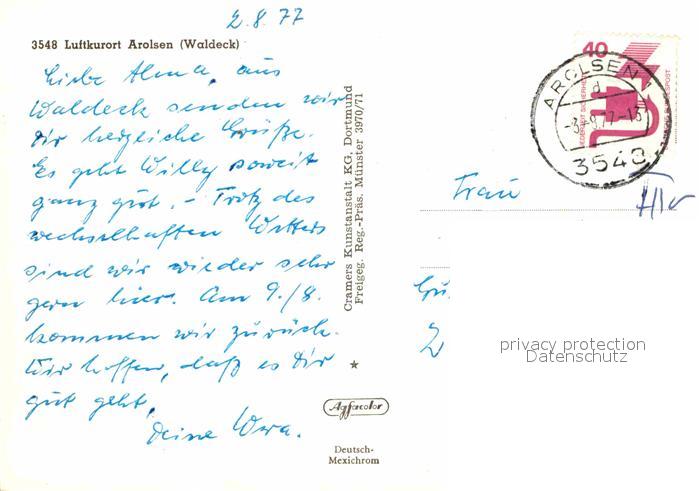 2.8.77
3548 Luftkurort Arolsen (Waldeck)
Liebe Alma, aus
Waldeck senden wir
Dir herzliche Grüße.
Es geht Willy soweit
ganz gut. – Trotz des
wechselhaften Wetters
sind wir wieder sehr
gern hier. Am 9./8.
kommen wir zurück.
Wir hoffen, daß es Dir
gut geht.
Deine
Cramers Kunstanstalt KG, Dortmund
Freigeg. Reg.-Präs. Münster 3970/71
Agfacolor
Deutsch-
Mexichrom
40
AROLSEN 1
d
3548
Frau
privacy protection
Datenschutz